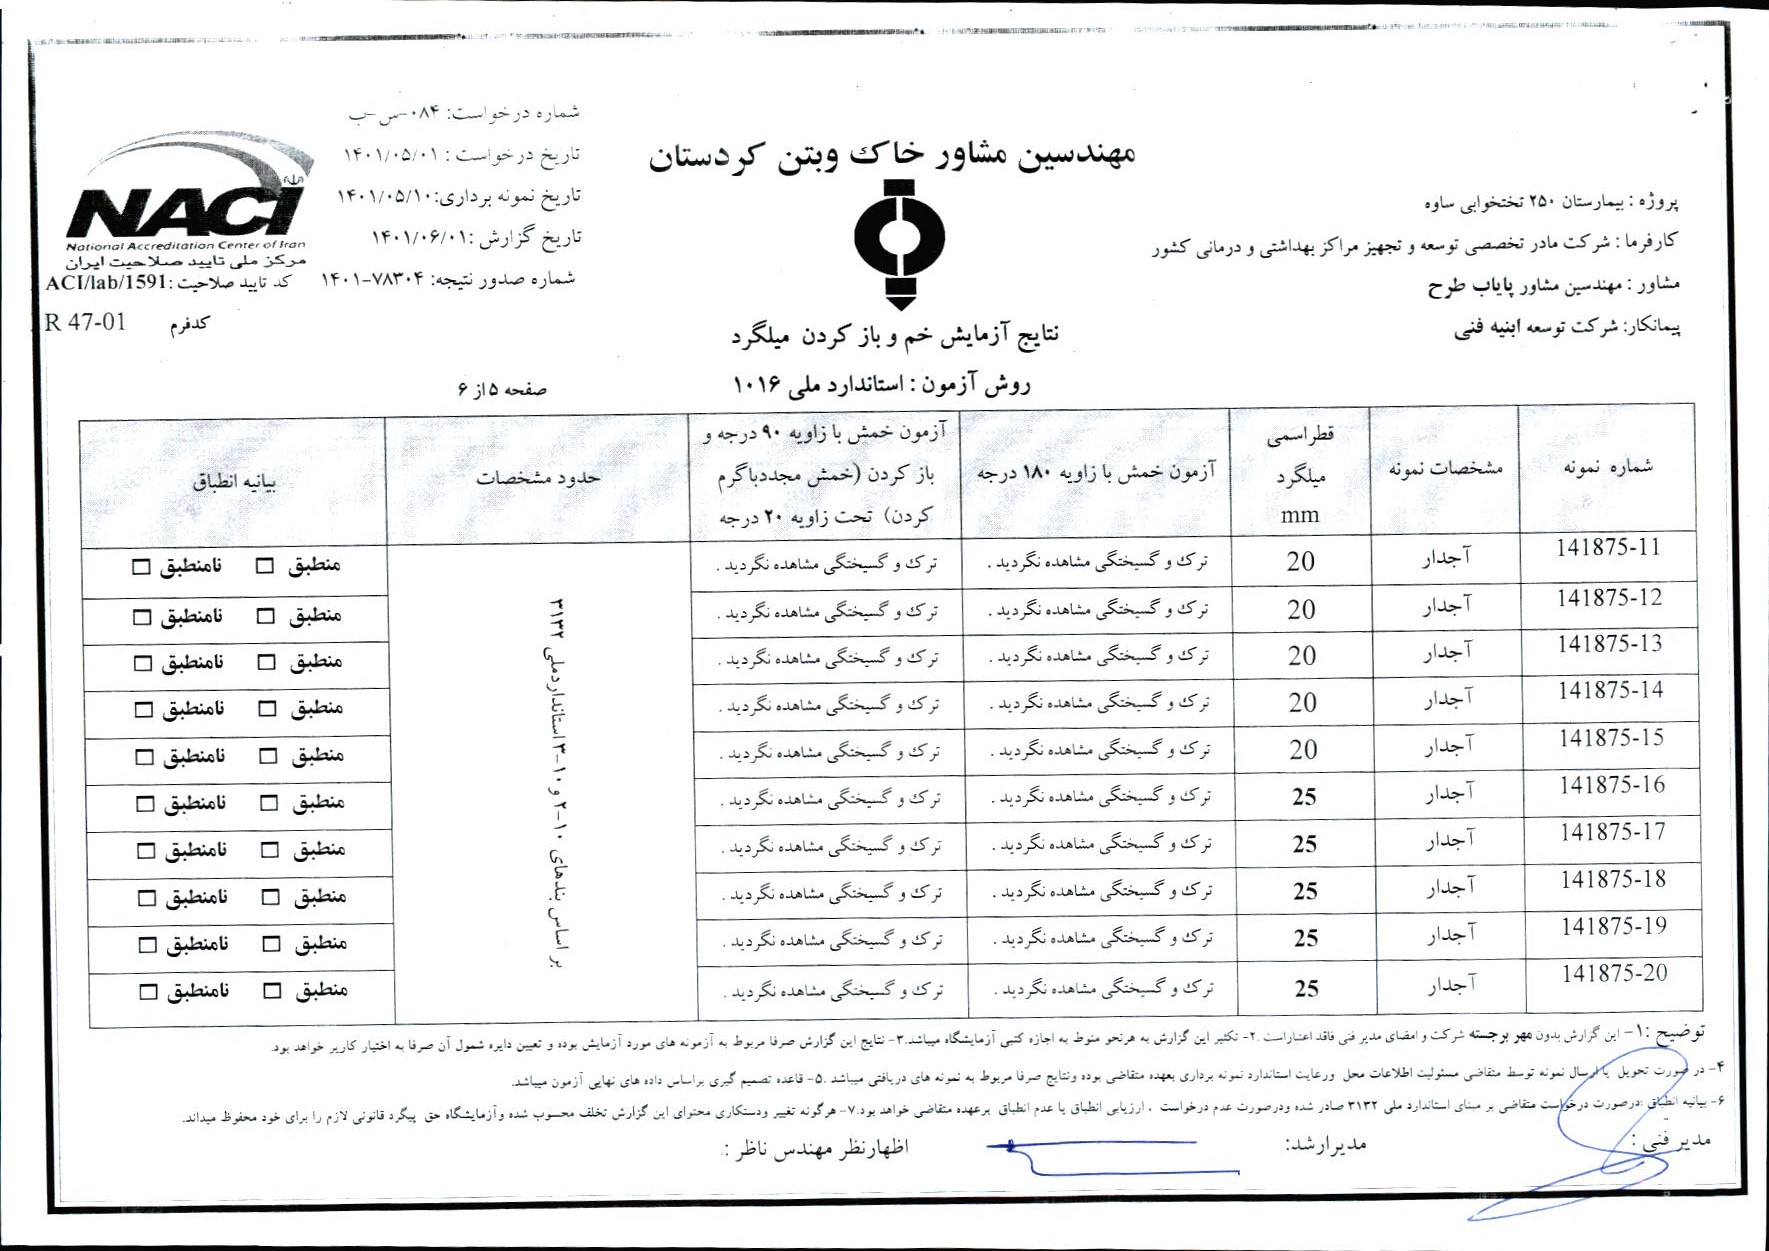 مهندسین مشاور خاک وبتن کردستان
شماره درخواست: ۰۸۴-س-ب
تاریخ درخواست : ۱۴۰۱/۰۵/۰۱
تاریخ نمونه برداری:۱۴۰۱/۰۵/۱۰
تاریخ گزارش :۱۴۰۱/۰۶/۰۱
شماره صدور نتیجه: ۷۸۳۰۴-۱۴۰۱
NACI
National Accreditation Center of Iran
مرکز ملی تایید صلاحیت ایران
کد تایید صلاحیت :ACI/lab/1591
کدفرم R 47-01
پروژه : بیمارستان ۲۵۰ تختخوابی ساوه
کارفرما : شرکت مادر تخصصی توسعه و تجهیز مراکز بهداشتی و درمانی کشور
مشاور : مهندسین مشاور پایاب طرح
پیمانکار: شرکت توسعه ابنیه فنی
نتایج آزمایش خم و باز کردن میلگرد
روش آزمون : استاندارد ملی ۱۰۱۶
صفحه ۵از ۶
شماره نمونه
مشخصات نمونه
قطراسمی
میلگرد
mm
آزمون خمش با زاویه ۱۸۰ درجه
آزمون خمش با زاویه ۹۰ درجه و
باز کردن (خمش مجددباگرم
کردن) تحت زاویه ۲۰ درجه
حدود مشخصات
بیانیه انطباق
141875-11 آجدار 20 ترک و گسیختگی مشاهده نگردید . ترک و گسیختگی مشاهده نگردید . منطبق □ نامنطبق □
141875-12 آجدار 20 ترک و گسیختگی مشاهده نگردید . ترک و گسیختگی مشاهده نگردید . منطبق □ نامنطبق □
141875-13 آجدار 20 ترک و گسیختگی مشاهده نگردید . ترک و گسیختگی مشاهده نگردید . منطبق □ نامنطبق □
141875-14 آجدار 20 ترک و گسیختگی مشاهده نگردید . ترک و گسیختگی مشاهده نگردید . منطبق □ نامنطبق □
141875-15 آجدار 20 ترک و گسیختگی مشاهده نگردید . ترک و گسیختگی مشاهده نگردید . منطبق □ نامنطبق □
141875-16 آجدار 25 ترک و گسیختگی مشاهده نگردید . ترک و گسیختگی مشاهده نگردید . منطبق □ نامنطبق □
141875-17 آجدار 25 ترک و گسیختگی مشاهده نگردید . ترک و گسیختگی مشاهده نگردید . منطبق □ نامنطبق □
141875-18 آجدار 25 ترک و گسیختگی مشاهده نگردید . ترک و گسیختگی مشاهده نگردید . منطبق □ نامنطبق □
141875-19 آجدار 25 ترک و گسیختگی مشاهده نگردید . ترک و گسیختگی مشاهده نگردید . منطبق □ نامنطبق □
141875-20 آجدار 25 ترک و گسیختگی مشاهده نگردید . ترک و گسیختگی مشاهده نگردید . منطبق □ نامنطبق □
بر اساس بندهای ۱۰-۲ و ۱۰-۳ استانداردملی ۳۱۳۲
توضیح :۱- این گزارش بدون مهر برجسته شرکت و امضای مدیر فنی فاقد اعتباراست .۲- تکثیر این گزارش به هرنحو منوط به اجازه کتبی آزمایشگاه میباشد.۳- نتایج این گزارش صرفا مربوط به آزمونه های مورد آزمایش بوده و تعیین دایره شمول آن صرفا به اختیار کاربر خواهد بود.
۴- در صورت تحویل یا ارسال نمونه توسط متقاضی مسئولیت اطلاعات محل ورعایت استاندارد نمونه برداری بعهده متقاضی بوده ونتایج صرفا مربوط به نمونه های دریافتی میباشد .۵- قاعده تصمیم گیری براساس داده های نهایی آزمون میباشد.
۶- بیانیه انطباق :درصورت درخواست متقاضی بر مبنای استاندارد ملی ۳۱۳۲ صادر شده ودرصورت عدم درخواست ، ارزیابی انطباق یا عدم انطباق برعهده متقاضی خواهد بود.۷- هرگونه تغییر ودستکاری محتوای این گزارش تخلف محسوب شده وآزمایشگاه حق پیگرد قانونی لازم را برای خود محفوظ میداند.
مدیر فنی : مدیرارشد: اظهارنظر مهندس ناظر :